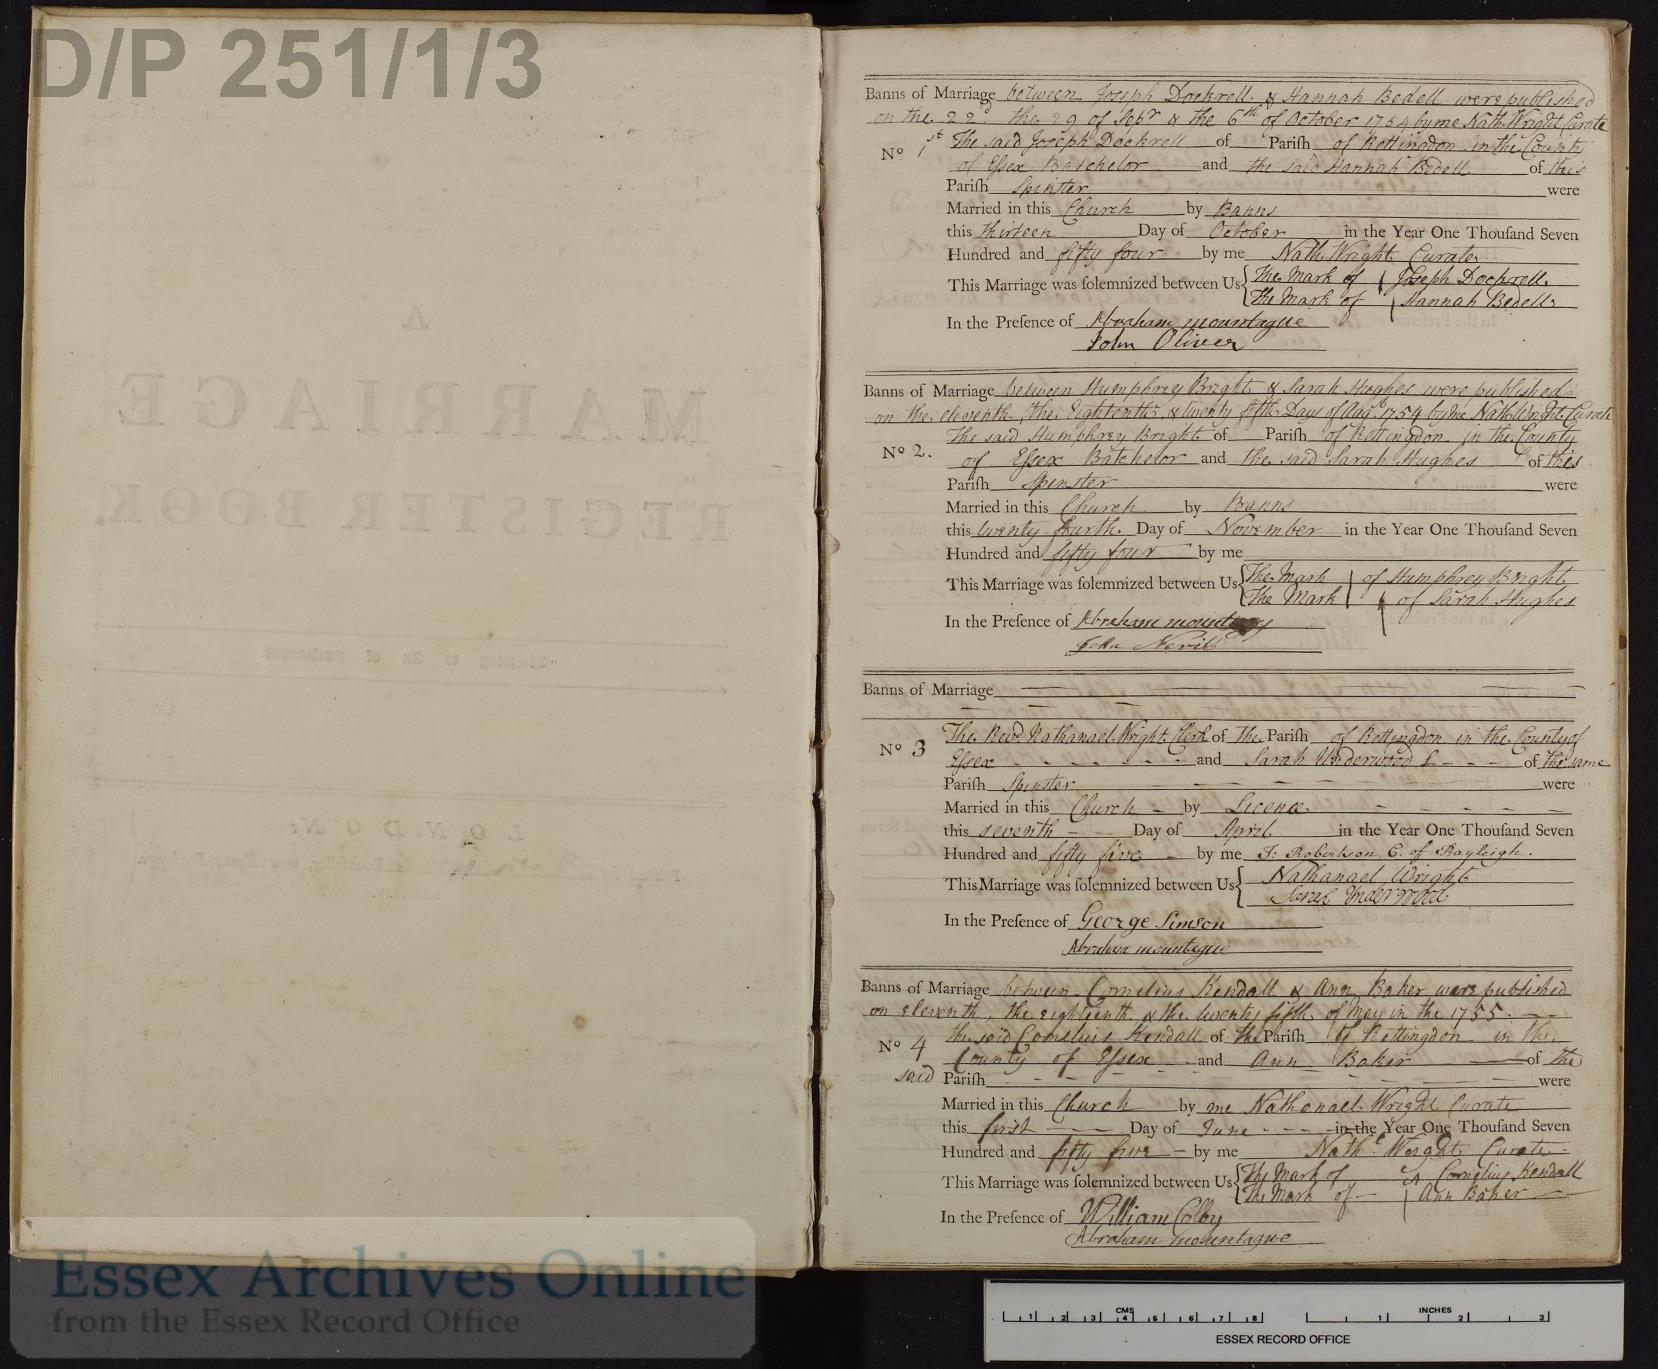 D/P 251/1/3
A
MARRIAGE
REGISTER BOOK.
LONDON:
Banns of Marriage between Joseph Dockrell & Hannah Bedell were published
on the 22d the 29 of Sepr & the 6th of October 1754 by me Nath. Wright Curate
No 1st The said Joseph Dockrell of Pariſh of Rettingdon in the County
of Eſsex Batchelor and the said Hannah Bedell of this
Pariſh Spinster were
Married in this Church by Banns
this thirteen Day of October in the Year One Thouſand Seven
Hundred and fifty four by me Nath. Wright Curate
This Marriage was ſolemnized between Us The Mark of Joseph Dockrell
The Mark of Hannah Bedell
In the Preſence of Abraham mountague
John Oliver
Banns of Marriage between Humphrey Bright & Sarah Hughes were published
on the eleventh, the Eighteenth, & twenty fifth Days of Augt 1754 by me Nath. Wright Curate
No 2. The said Humphrey Bright of Pariſh of Rettingdon in the County
of Eſsex Batchelor and the said Sarah Hughes of this
Pariſh Spinster were
Married in this Church by Banns
this twenty fourth Day of November in the Year One Thouſand Seven
Hundred and fifty four by me
This Marriage was ſolemnized between Us The Mark of Humphrey Bright
The Mark of Sarah Hughes
In the Preſence of Abraham
John Nevill
Banns of Marriage
No 3 The Revd Nathanael Wright Clerk of The Pariſh of Rettingdon in the County of
Eſsex and Sarah Underwood of the same
Pariſh Spinster were
Married in this Church by Licence
this seventh Day of April in the Year One Thouſand Seven
Hundred and fifty five by me J: Robertson C. of Rayleigh.
This Marriage was ſolemnized between Us Nathanael Wright
Sarah Underwood
In the Preſence of George Simson
Abraham mountague
Banns of Marriage between Cornelius Kendall & Ann Baker were published
on eleventh, the eighteenth & the twenty fifth of May in the 1755.
No 4 the said Cornelius Kendall of the Pariſh of Rettingdon in the
County of Eſsex and Ann Baker of the
said Pariſh were
Married in this Church by me Nathanael Wright Curate
this first Day of June in the Year One Thouſand Seven
Hundred and fifty five by me Nathl Wright Curate
This Marriage was ſolemnized between Us The Mark of Cornelius Kendall
The Mark of Ann Baker
In the Preſence of William Colby
Abraham mountague
Essex Archives Online
from the Essex Record Office
CMS INCHES
1 2 3 4 5 6 7 8 1 2 3
ESSEX RECORD OFFICE